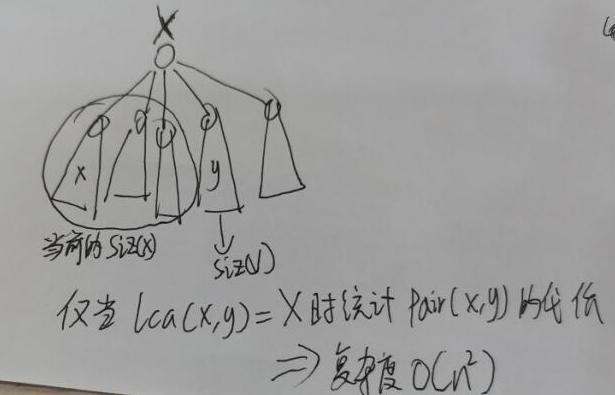 X
x
y
当前的 siz(x)
siz(v)
仅当 lca(x,y) = X 时统计 pair(x,y) 的代价
⇒ 复杂度 O(n²)